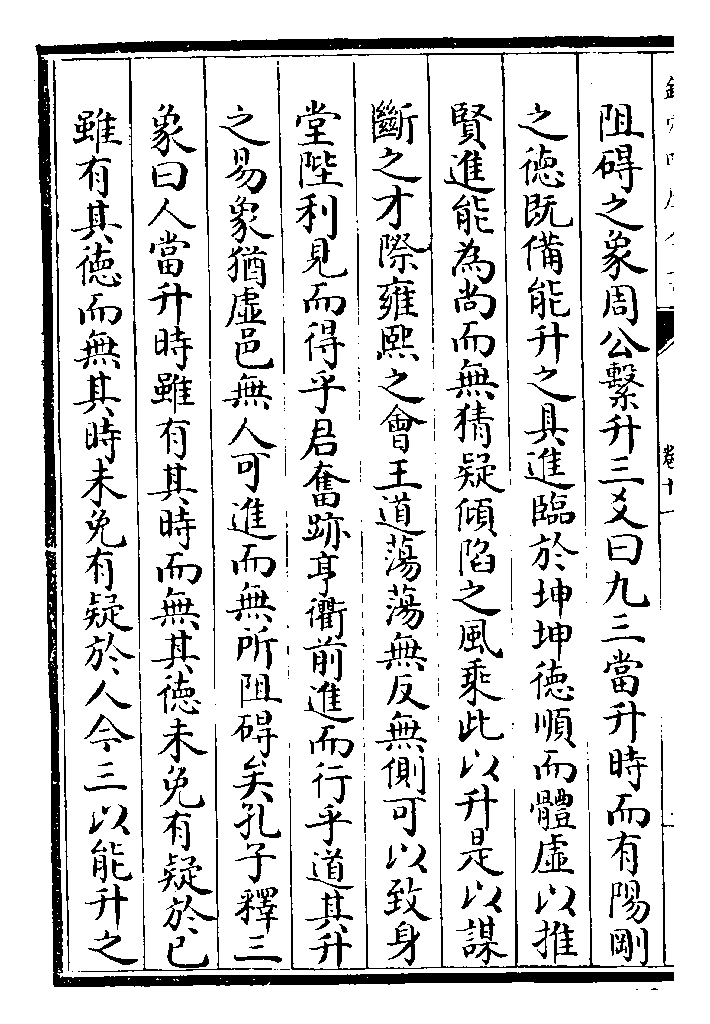 阻碍之象周公繫升三爻曰九三當升時而有陽剛
之徳既備能升之具進臨於坤坤徳順而體虚以推
賢進能為尚而無猜疑傾陷之風乗此以升是以謀
斷之才際雍熙之會王道蕩蕩無反無側可以致身
堂陛利見而得乎君奮跡亨衢前進而行乎道其升
之易象猶虚邑無人可進而無所阻碍矣孔子釋三
象曰人當升時雖有其時而無其徳未免有疑於已
雖有其徳而無其時未免有疑於人今三以能升之
卷十